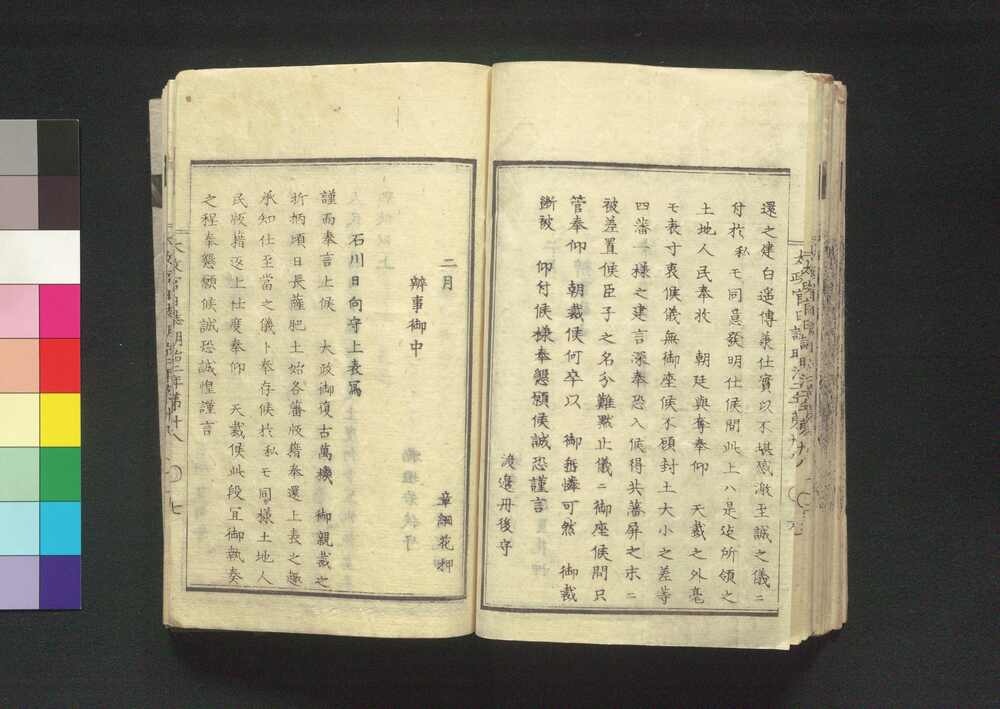 還之建白遙傳兼仕實以不堪感激至誠之儀ニ
付於私モ同意發明仕候間此上ハ是迄所領之
土地人民奉收　朝廷與奪奉仰　天裁之外毫
モ表寸衷候儀無御座候不顧封土大小之差等
四藩一樣之建言深奉恐入候得共藩屏之末ニ
被差置候臣子之名分難黙止儀ニ御座候間只
管奉仰　朝裁候何卒以　御垂憐可然　御裁
斷被　仰付候樣奉懇願候誠恐謹言
渡邊丹後守
二月　章綱花押
辨事御中
石川日向守上表寫
謹而奉言上候　大政御復古萬機　御親裁之
折柄頃日長薩肥土始各藩版籍奉還上表之趣
承知仕至當之儀ト奉存候於私モ同樣土地人
民版籍返上仕度奉仰　天裁候此段宜御執奏
之程奉懇願候誠恐誠惶謹言
太政官日誌明治二年第十八　〇七